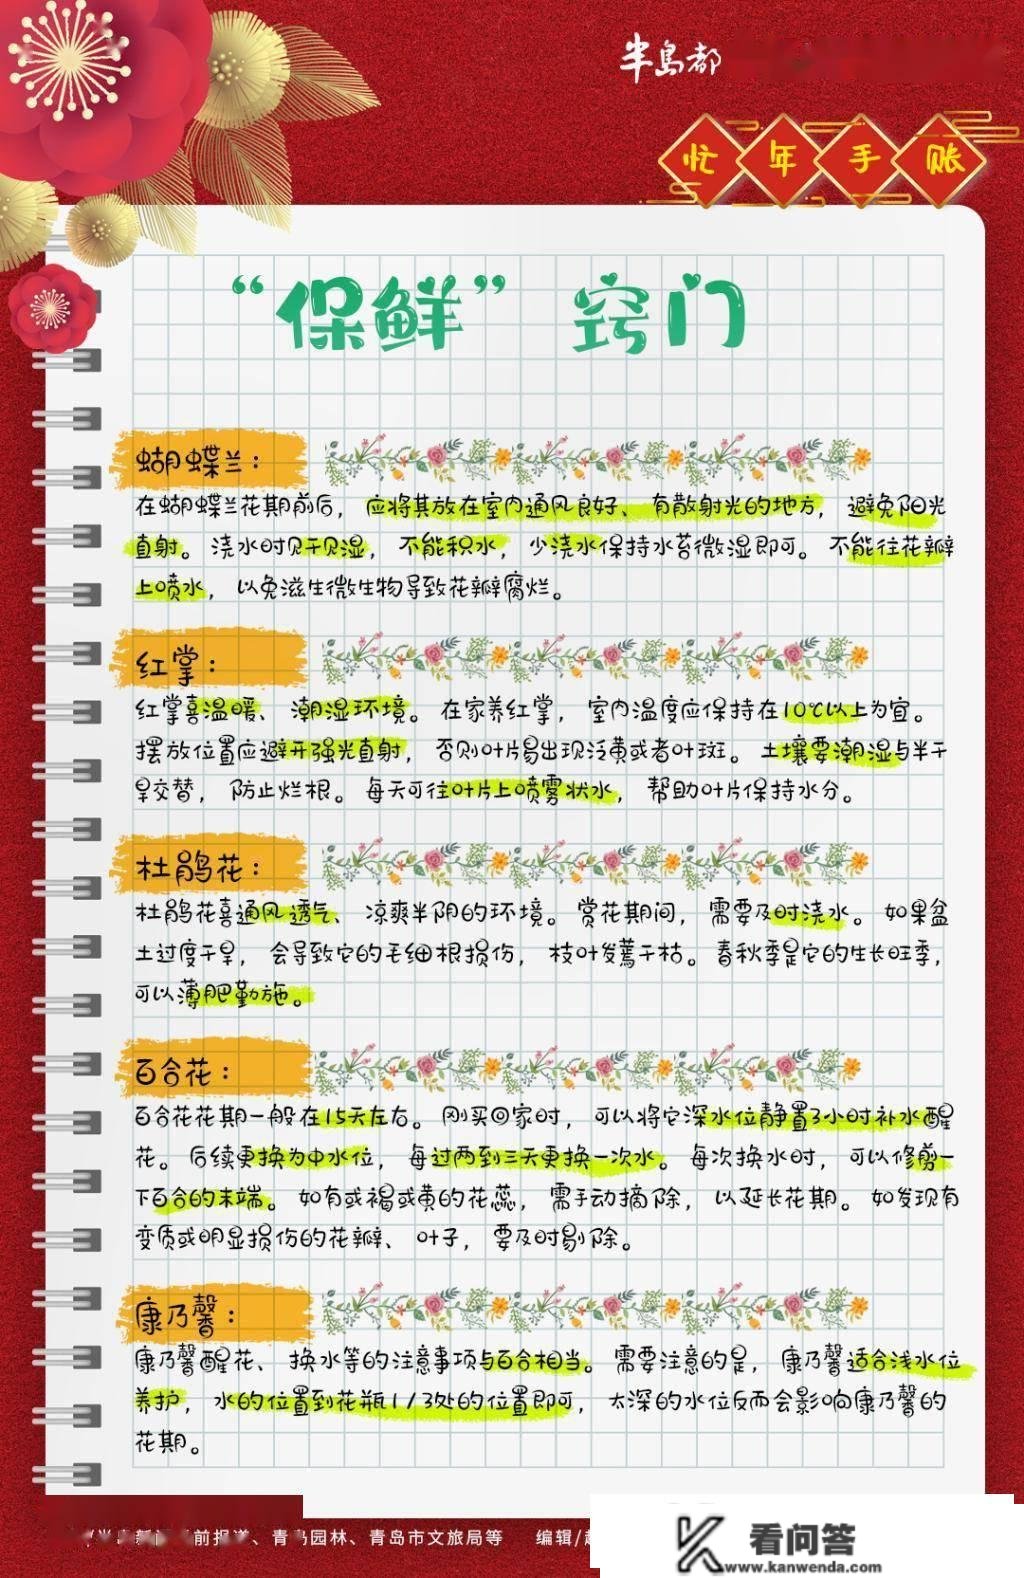 半岛都
忙年手账
“保鲜”窍门
蝴蝶兰：
在蝴蝶兰花期前后，应将其放在室内通风良好、有散射光的地方，避免阳光
直射。浇水时见干见湿，不能积水，少浇水保持水苔微湿即可。不能往花瓣
上喷水，以免滋生微生物导致花瓣腐烂。
红掌：
红掌喜温暖、潮湿环境。在家养红掌，室内温度应保持在10℃以上为宜。
摆放位置应避开强光直射，否则叶片易出现泛黄或者叶斑。土壤要潮湿与半干
旱交替，防止烂根。每天可往叶片上喷雾状水，帮助叶片保持水分。
杜鹃花：
杜鹃花喜通风透气、凉爽半阴的环境。赏花期间，需要及时浇水。如果盆
土过度干旱，会导致它的毛细根损伤，枝叶发蔫干枯。春秋季是它的生长旺季，
可以薄肥勤施。
百合花：
百合花花期一般在15天左右。刚买回家时，可以将它深水位静置3小时补水醒
花。后续更换为中水位，每过两到三天更换一次水。每次换水时，可以修剪一
下百合的末端。如有或褐或黄的花蕊，需手动摘除，以延长花期。如发现有
变质或明显损伤的花瓣、叶子，要及时剔除。
康乃馨：
康乃馨醒花、换水等的注意事项与百合相当。需要注意的是，康乃馨适合浅水位
养护，水的位置到花瓶1/3处的位置即可，太深的水位反而会影响康乃馨的
花期。
前报道、青岛园林、青岛市文旅局等 编辑/
看问答
www.kanwenda.com